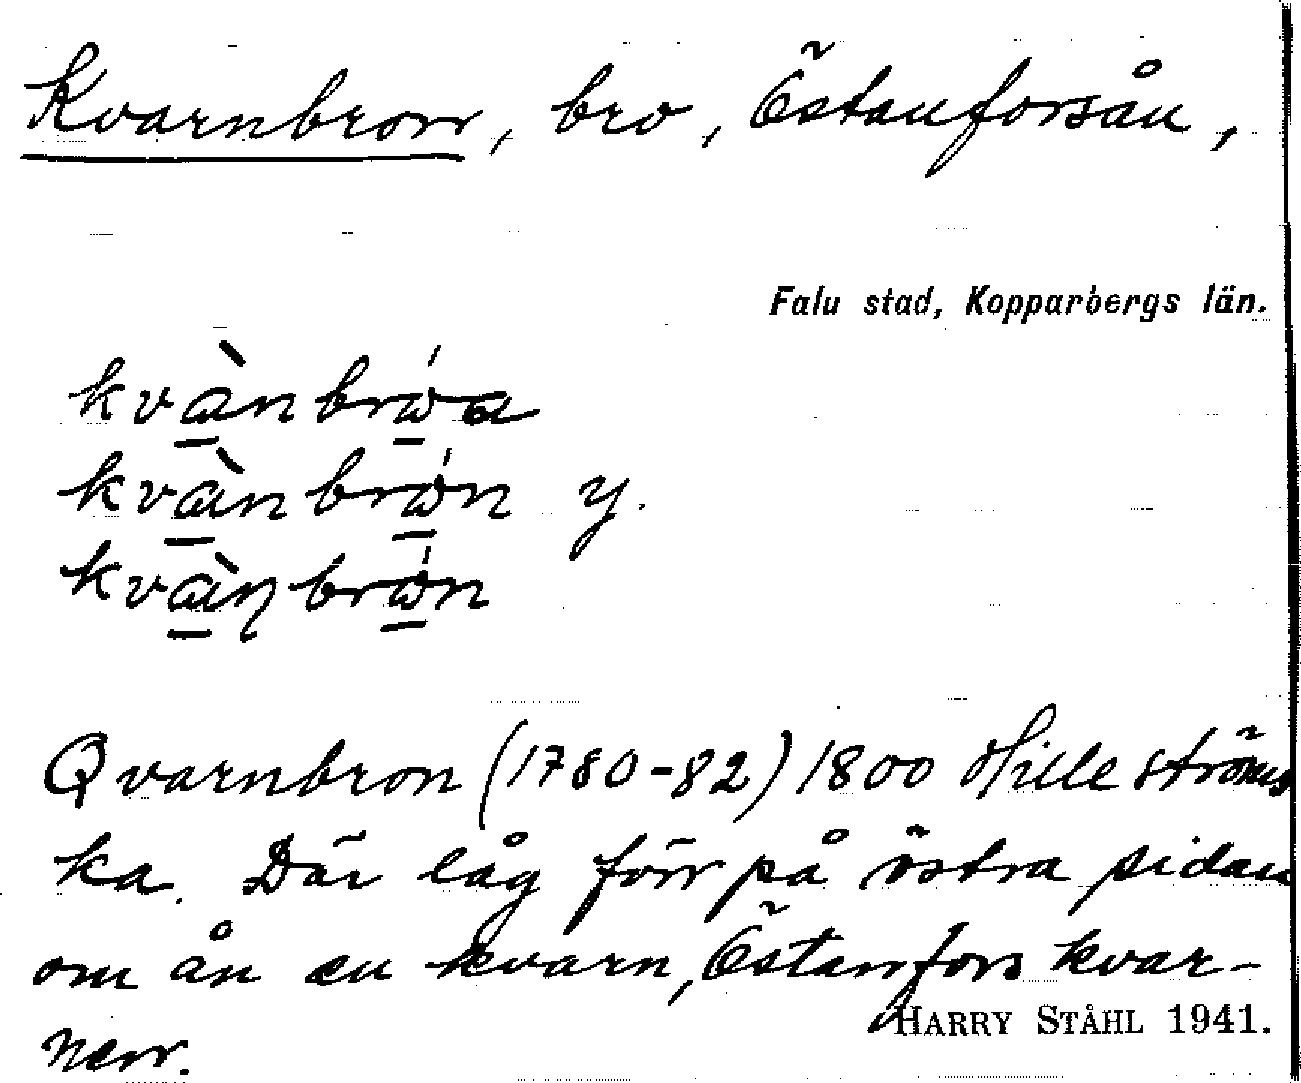 Kvarnbron, bro, Östanforsån,
Falu stad, Kopparbergs län.
kvànbróa
kvànbrón y.
kvàṇbrón
Qvarnbron (1780-82) 1800 Hilleströms
ka. Där låg förr på östra sidan
om ån en kvarn, Östanfors kvar-
nen.
HARRY STÅHL 1941.